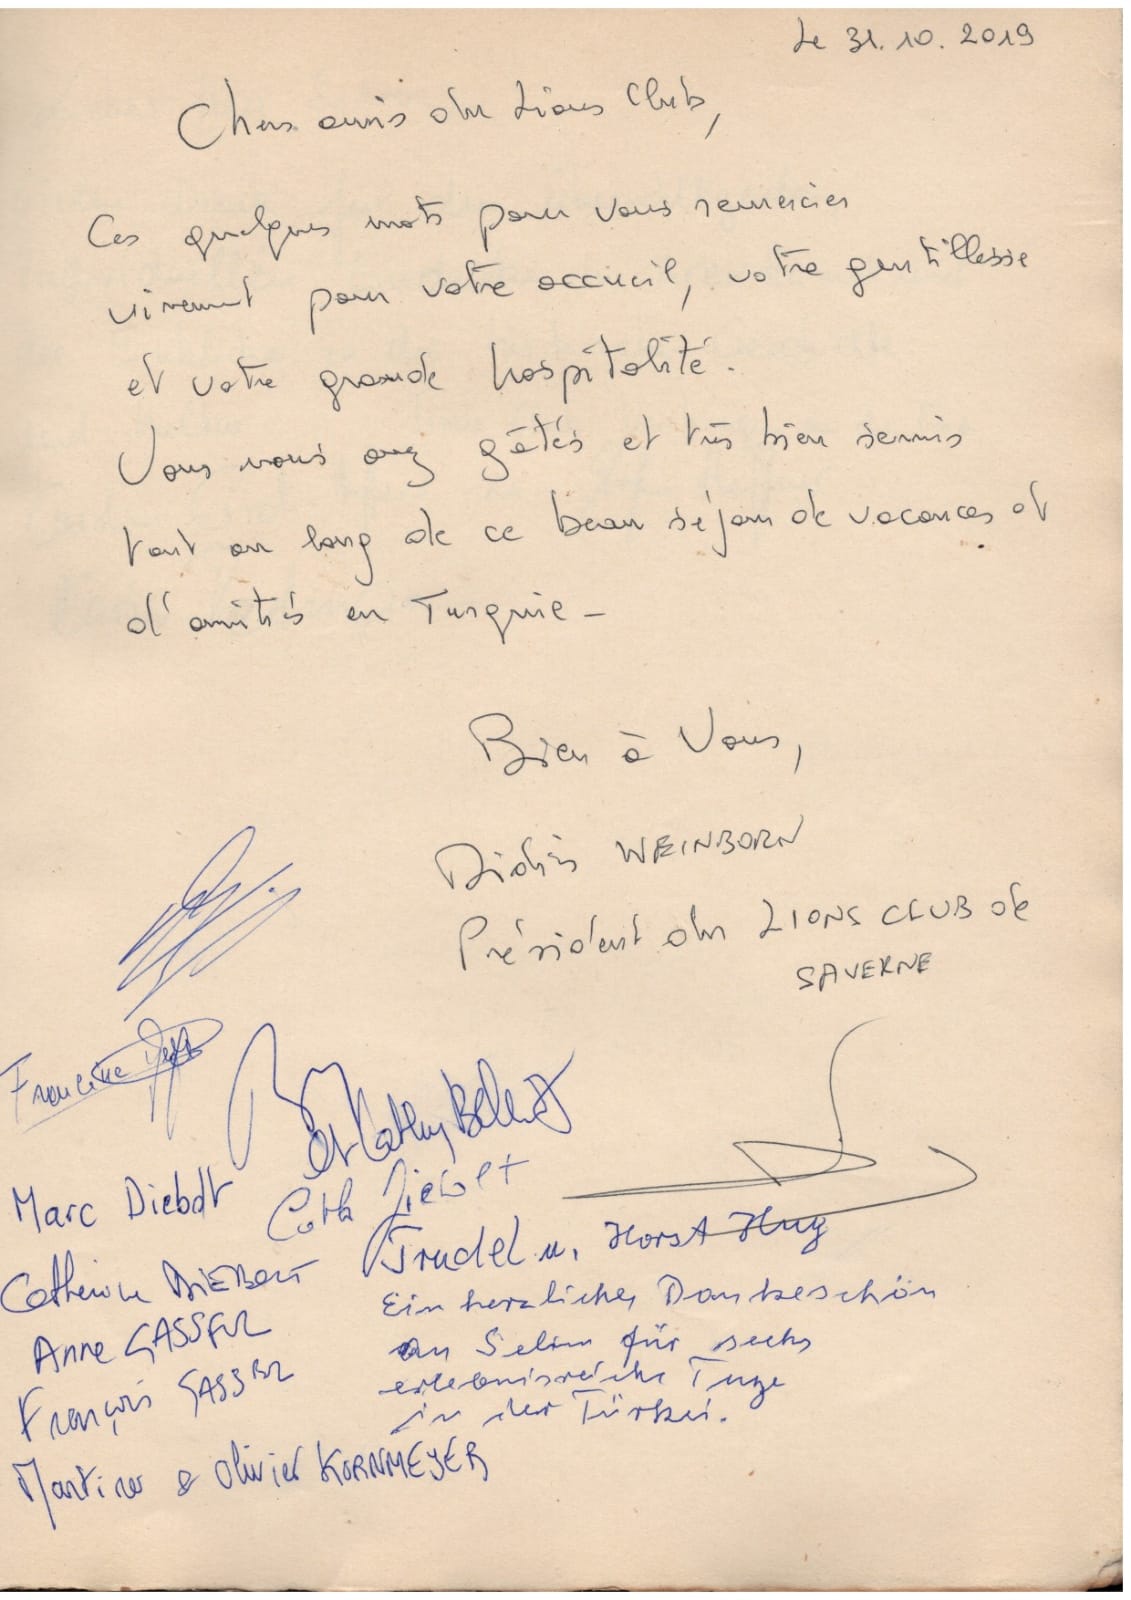 Le 31.10.2019
Chers amis du Lions Club,
Ces quelques mots pour vous remercier
vivement pour votre accueil, votre gentillesse
et votre grande hospitalité.
Vous nous avez gâtés et très bien servis
tout au long de ce beau séjour de vacances et
d'amitiés en Turquie -
Bien à Vous,
Didier WEINBORN
Président du LIONS CLUB de
SAVERNE
Francine
Kathy
Marc Diebolt
Catherine DIEBOLT
Trudel u. Horst Hug
Ein herzliches Dankeschön
an Selim für sechs
erlebnisreiche Tage
in der Türkei.
Anne GASSER
François GASSER
Martine & Olivier KORNMEYER